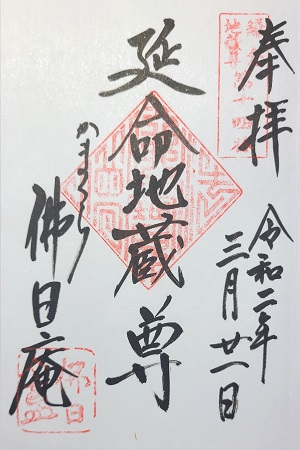 奉拝
令和二年
三月廿一日
延命地蔵尊
かまくら
佛日庵